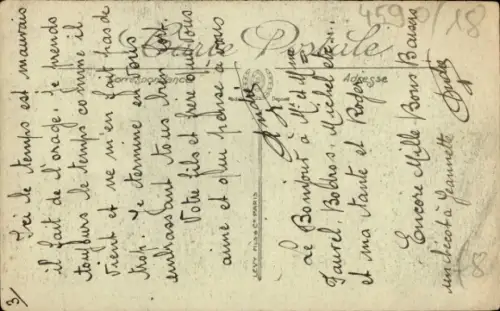 Carte Postale
Correspondance
Adresse
45990/18
3/
Ici le temps est mauvais
il fait de l'orage. Je prends
toujours le temps comme il
vient et ne m'en fait pas de
trop. Je termine en vous
embrassant tous bien fort.
Votre fils et frère qui vous
aime et qui pense à vous
André
Le Bonjour à Mr et Mme
Faurel. Bodros. Michel etc...
et ma tante et Roger
Encore Mille Bons Baisers
un bécot à Jeannette
André
LEVY FILS & Cie PARIS